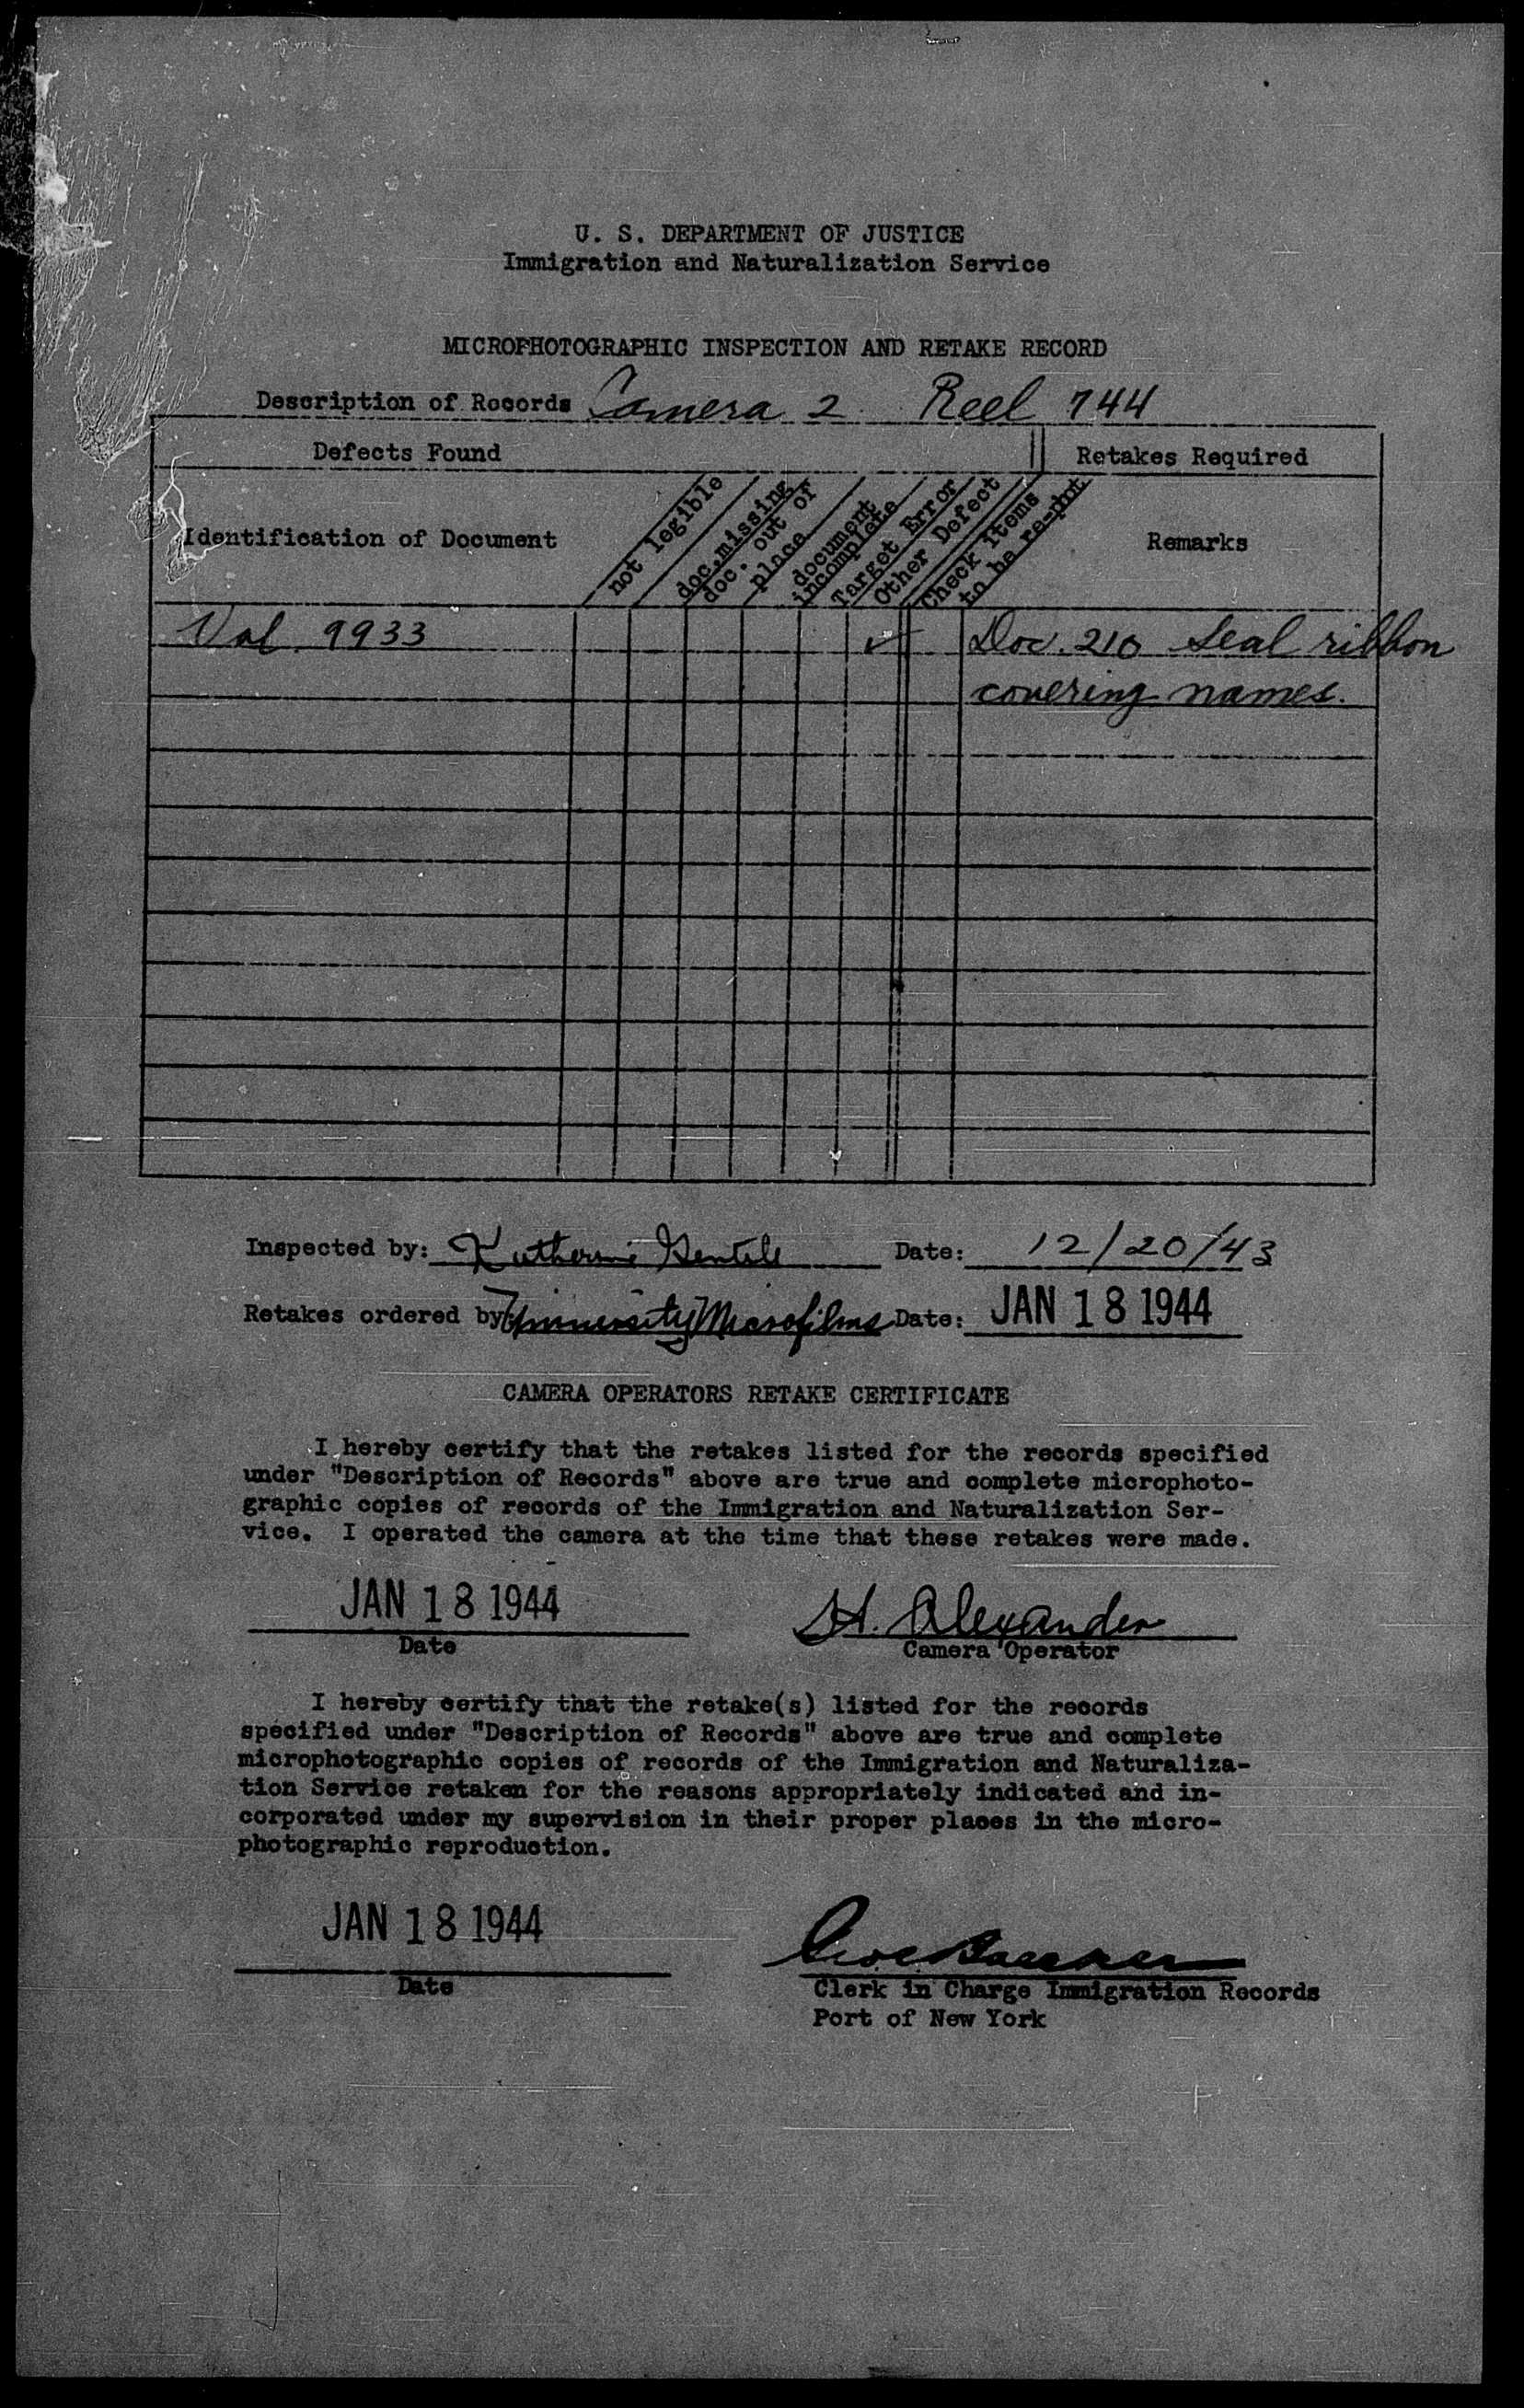 U. S. DEPARTMENT OF JUSTICE
Immigration and Naturalization Service
MICROPHOTOGRAPHIC INSPECTION AND RETAKE RECORD
Description of Records Camera 2 Reel 744
Defects Found
Retakes Required
Identification of Document
not legible
doc. missing
doc. out of
place
document
incomplete
Target Error
Other Defect
Check items
to be re-phot
Remarks
Vol. 9933 ✓ Doc. 210 Seal ribbon
covering names.
Inspected by: Katherine Gentile Date: 12/20/43
Retakes ordered by: University Microfilms Date: JAN 18 1944
CAMERA OPERATORS RETAKE CERTIFICATE
I hereby certify that the retakes listed for the records specified
under "Description of Records" above are true and complete microphoto-
graphic copies of records of the Immigration and Naturalization Ser-
vice. I operated the camera at the time that these retakes were made.
JAN 18 1944 H. Alexander
Date Camera Operator
I hereby certify that the retake(s) listed for the records
specified under "Description of Records" above are true and complete
microphotographic copies of records of the Immigration and Naturaliza-
tion Service retaken for the reasons appropriately indicated and in-
corporated under my supervision in their proper places in the micro-
photographic reproduction.
JAN 18 1944
Date Clerk in Charge Immigration Records
Port of New York